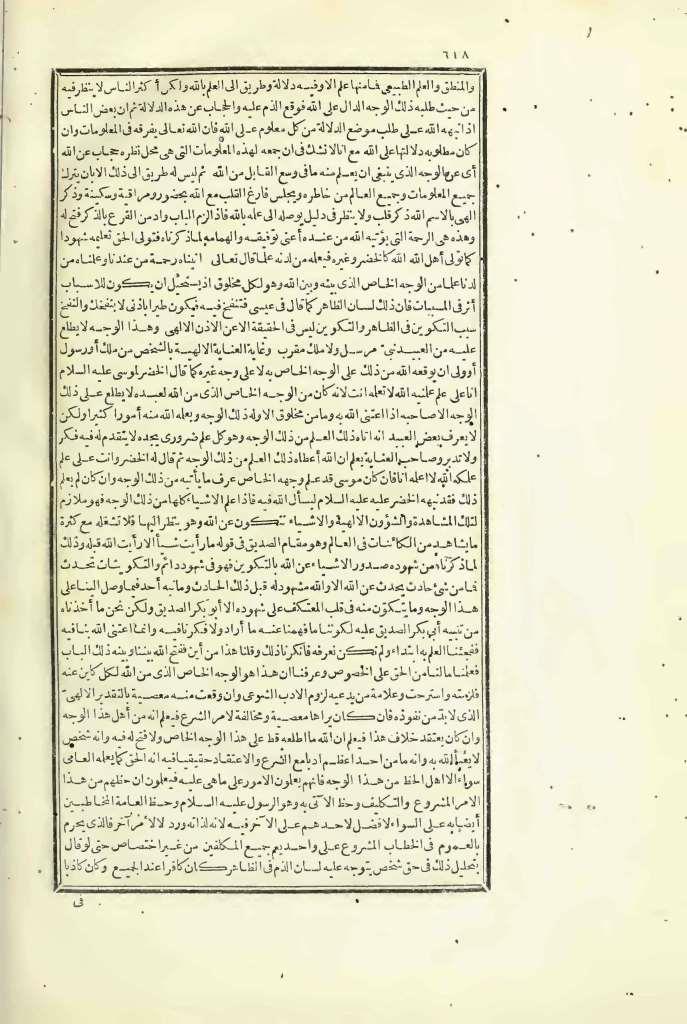 ٦١٨
والمنطق والعلم الطبيعي فامنها علم الاوفيسه دلالة وطريق الى العلم بالله ولكن أكثر الناس لا ينظر فيه
من حيث طلبه ذلك الوجه الدال على الله فوقع الذم عليه والحجاب عن هذه الدلالة ثم ان بعض الناس
اذا نبهه الله عـلى طلب موضع الدلالة من كل معلوم عـلى الله فان الله تعالى يفرقه فى المعلومات وان
كان مطلوبه دلالتها على الله مع انا لانشك فى ان جمعه لهذه المعلومات التى هى محل نظره حجاب عن الله
أى عن الوجه الذى ينبغى ان يعـلم منه مافى وسع القابل من الله ثم ليس له طريق الى ذلك الا بان يترك
جميع المعلومات وجميع العالم من خاطره ويجلس فارغ القلب مع الله بحضور ومراقبة وسكينة وذكر
الهى بالاسم الله ذكر قلب ولا ينظر فى دليل يوصله الى علمه بالله فاذا لزم الباب وادمن القرع بالذكر فتح له
وهذه هى الرحمة التى يؤتيه الله من عنـده أعنى توفيقـه والهامه لما ذكرناه فتولى الحق تعليمه شهودا
كما تولى أهل الله كالخضر وغيره فيعلمه من لدنه علما قال تعالى اتيناه رحمة من عندنا وعلمناه من
لدنا علما من الوجه الخاص الذى بينه وبين الله وهو لكل مخلوق اذ يستحيل ان يكون للاسباب
أثر فى المسببات فان ذلك لسان الظاهر كما قال فى عيسى فتنفخ فيـه فيكون طيرا باذنى لا بنفخك والنفخ
سبب التكوين فى الظاهر والتكوين ليس فى الحقيقة الا عن الاذن الالهى وهـذا الوجـه لا يطلع
عليـه من العبيـد نبىّ مرسـل ولا ملك مقرب وغاية العناية الالهيـة بالشخص من ملك أو رسول
أو ولى ان يوقعه الله من ذلك على الوجه الخاص به لا على وجه غيره كما قال الخضر لموسى عليه السلام
انا على علم علمنيه الله لا تعلمه انت لانه كان من الوجـه الخاص الذى من الله لعبـده لا يطلع عـلى ذلك
الوجه الا صاحبه اذا اعتنى الله به وما من مخلوق الا وله ذلك الوجه ويعلمه الله منه أمورا كثيرا ولكن
لا يعرف بعض العبيد انه اتاه ذلك العـلم من ذلك الوجه وهو كل علم ضرورى يجده لا يتقدم له فيه فكر
ولا تدبر وصاحب العناية يعلم ان الله أعطاه ذلك العلم من ذلك الوجه ثم قال له الخضر وانت على علم
علمكه الله لا اعلمه انا فان كان موسى قد علم وجهه الخاص عرف ما يأتيه من ذلك الوجه وان كان لم يعلم
ذلك فقد نبهه الخضر عليه عليه السلام ليسأل الله فيه فاذا علم الاشياء كلها من ذلك الوجه فهو ملازم
لتلك المشاهدة والشؤون الالهية والاشياء تتكون عن الله وهو ينظر اليها فلا تشغله مع كثرة
ما يشاهد من الكائنات فى العالم وهو مقام الصديق فى قوله ما رأيت شيأ الا رأيت الله قبله وذلك
لما ذكرناه من شهوده صدور الاشياء عن الله بالتكوين فهو فى شهود دائم والتكوينات تحدث
فما من شئ حادث يحدث عن الله الا والله مشهود له قبل ذلك الحادث وما نبه أحد فيما وصل الينا على
هـذا الوجه وما يتكوّن منه فى قلب المعتكف على شهوده الا أبو بكر الصديق ولكن نحن ما أخذناه
من تنبيه أبى بكر الصديق عليه لكوننا ما فهمنا عنـه ما أراد ولا فكرنا فيـه وانما اعتنى الله بنا فيه
ففجئنا العلم به ابتداء ولم نكن نعرفه فانكرنا ذلك وقلنا هذا من أين ففتح الله بيننا وبينه ذلك الباب
فعلمنا مالنا من الحق على الخصوص وعرفنا ان هذا هو الوجه الخاص الذى من الله لكل كائن عنه
فلزمته واسترحت وعلامة من يدعيه لزوم الادب الشرعى وان وقعت منـه معصية بالتقدير الالهىّ
الذى لابد من نفوذه فان كان يراها معصية ومخالفة لامر الشرع فيعلم انه من أهل هذا الوجه
وان كان يعتقد خلاف هذا فيعلم ان الله ما اطلعه قط على هذا الوجه الخاص ولا فتح له فيه وانه شخص
لا يعبأ الله به وانه ما من احد اعظم ادبا مع الشرع والا اعتقاد حقيقيا فيه انه الحق كما يعلمه العامى
سواء الا اهل الحظ من هـذا الوجه فانهم يعلمون الامور على ماهى عليـه فيعلمون ان حظهم من هـذا
الامر المشروع والتكليف وحظ الآتى به وهو الرسول عليـه السلام وحظ العامة المخاطبين
أيضا به على السواء لا فضل لاحد هم عـلى الآخر فيـه لانه لذاته ورد لا لامر آخر فالذى يحرم
بالعموم فى الخطاب المشروع عـلى واحد يعم جميع المكلفين من غير اختصاص حتى لو قال
بتحليل ذلك فى حق شخص يتوجه عليه لسان الذم فى الظاهر كان كافرا عند الجميع وكان كاذبا
فى